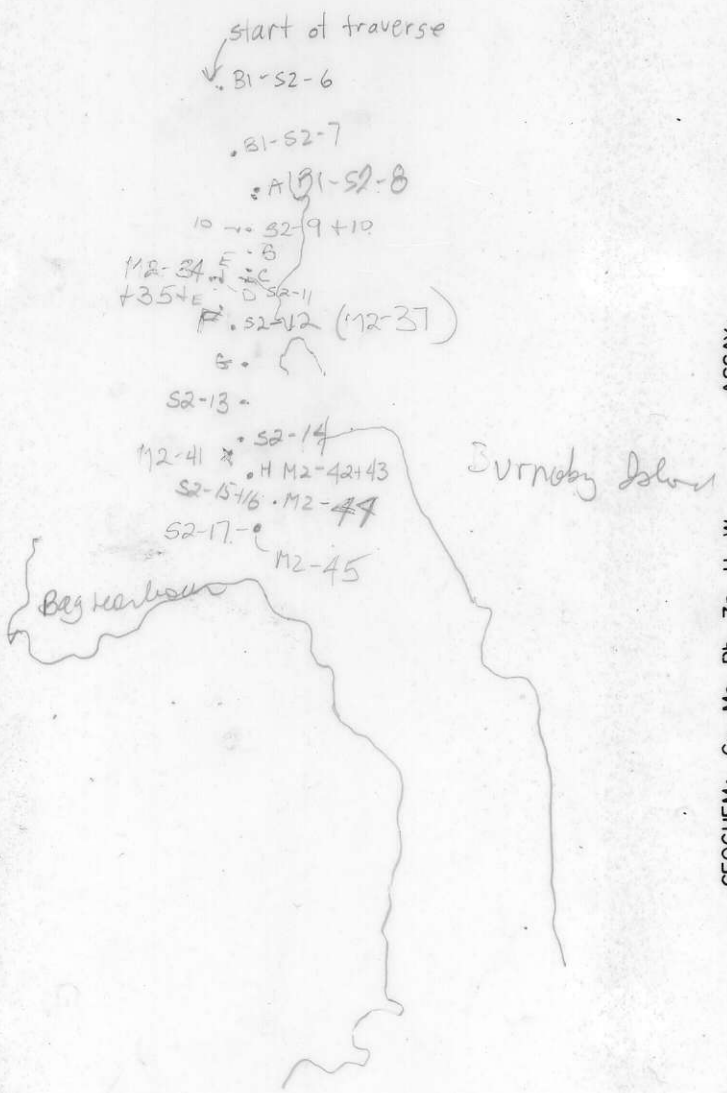 start of traverse
B1-S2-6
B1-S2-7
A B1-S2-8
10 S2-9+10
B
M2-34 E C
+35+E D S2-11
F S2-12 (M2-37)
G
S2-13
S2-14
M2-41 x
H M2-42+43
S2-15+16 M2-44
S2-17
M2-45
Burnaby
Bag
ASSAY
GEOCHEM:
Mo Pb Zn U W